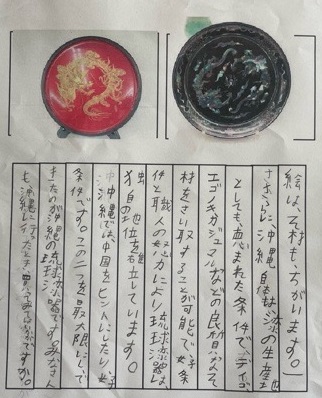 絵は、そ村もちがいます。」
さらに沖縄自体は漆の生産地
としても恵まれた条件で、ディゴ、
エゴノキガジュマルなどの良質なそ
材をさい取することが可能で好条
件と職人の努力により琉球漆器は、
独自の地位を確立しています。
沖縄では、中国をヒントにしたい
条件です。この二つを最大限にして
きたのが沖縄の琉球漆器ですみなさん
も沖縄に行ったとき買ってみてはいかがですか。